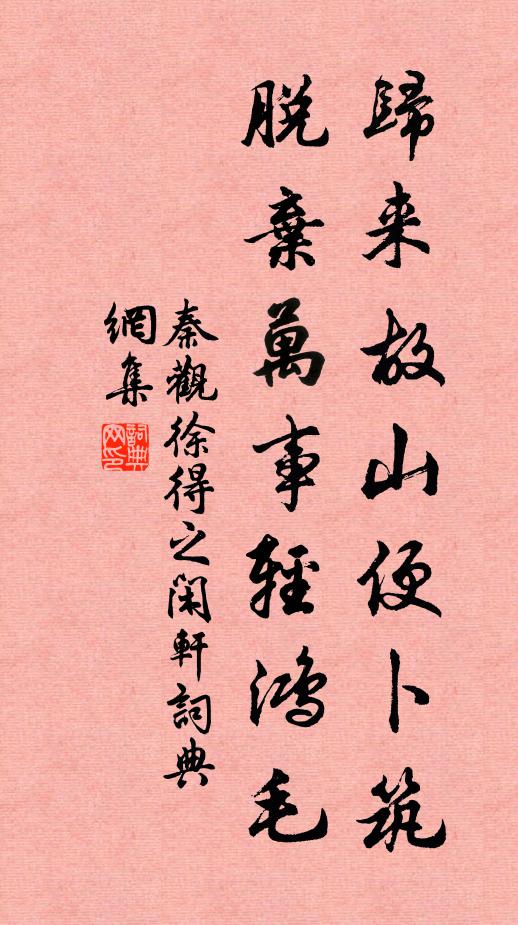 歸来故山便卜筑
脱棄萬事輕鴻毛
秦觀徐得之閑軒詞典
網集
詞典网印